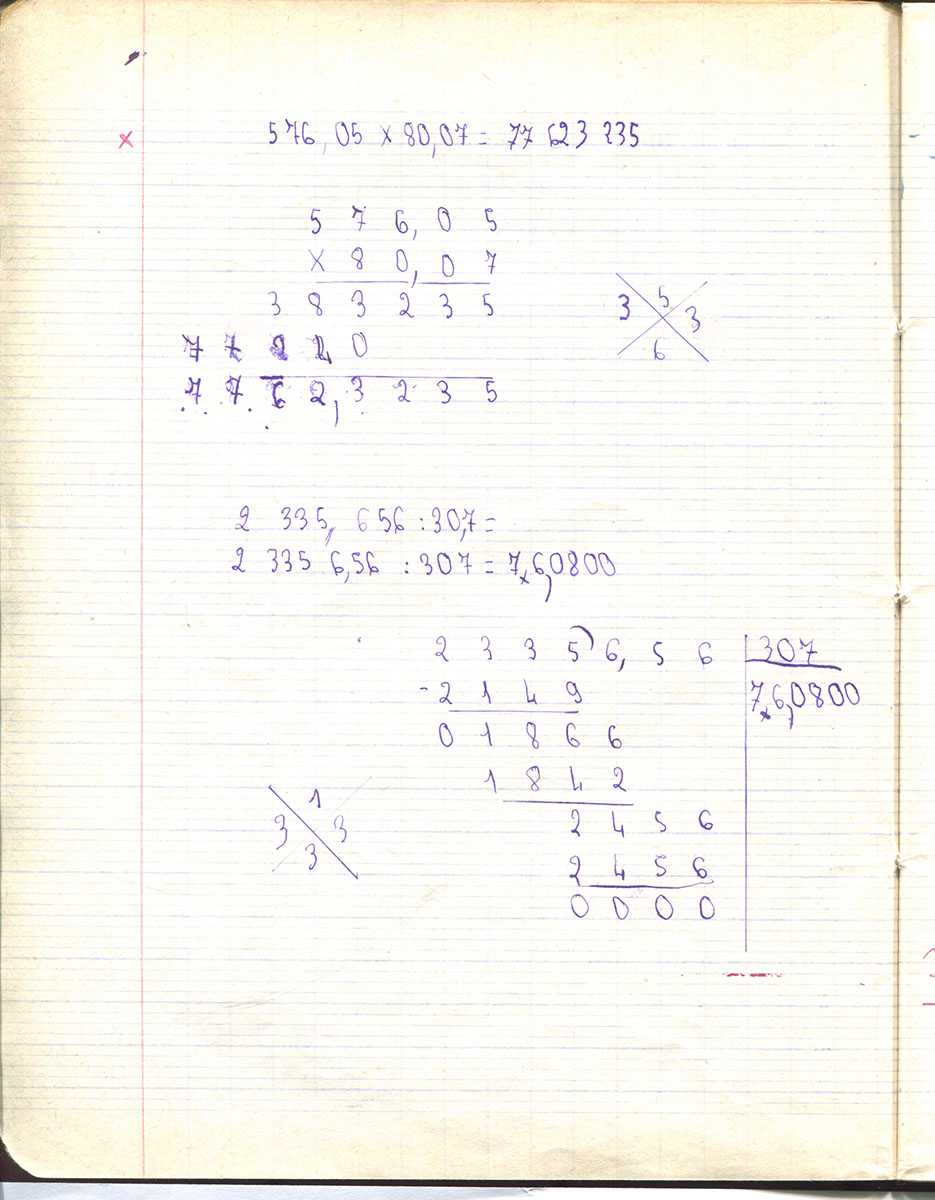 x 576,05 x 80,07 = 77 623 235
5 7 6, 0 5
x 8 0, 0 7
3 8 3 2 3 5
7 7 2 2 0
7 7 6 2, 3 2 3 5
3 5 3 6
2 335, 656 : 30,7 =
2 335 6,56 : 307 = 7x6,0800
2 3 3 5 6, 5 6 307
- 2 1 4 9 7x6,0800
0 1 8 6 6
1 8 4 2
2 4 5 6
2 4 5 6
0 0 0 0
3 1 3 3